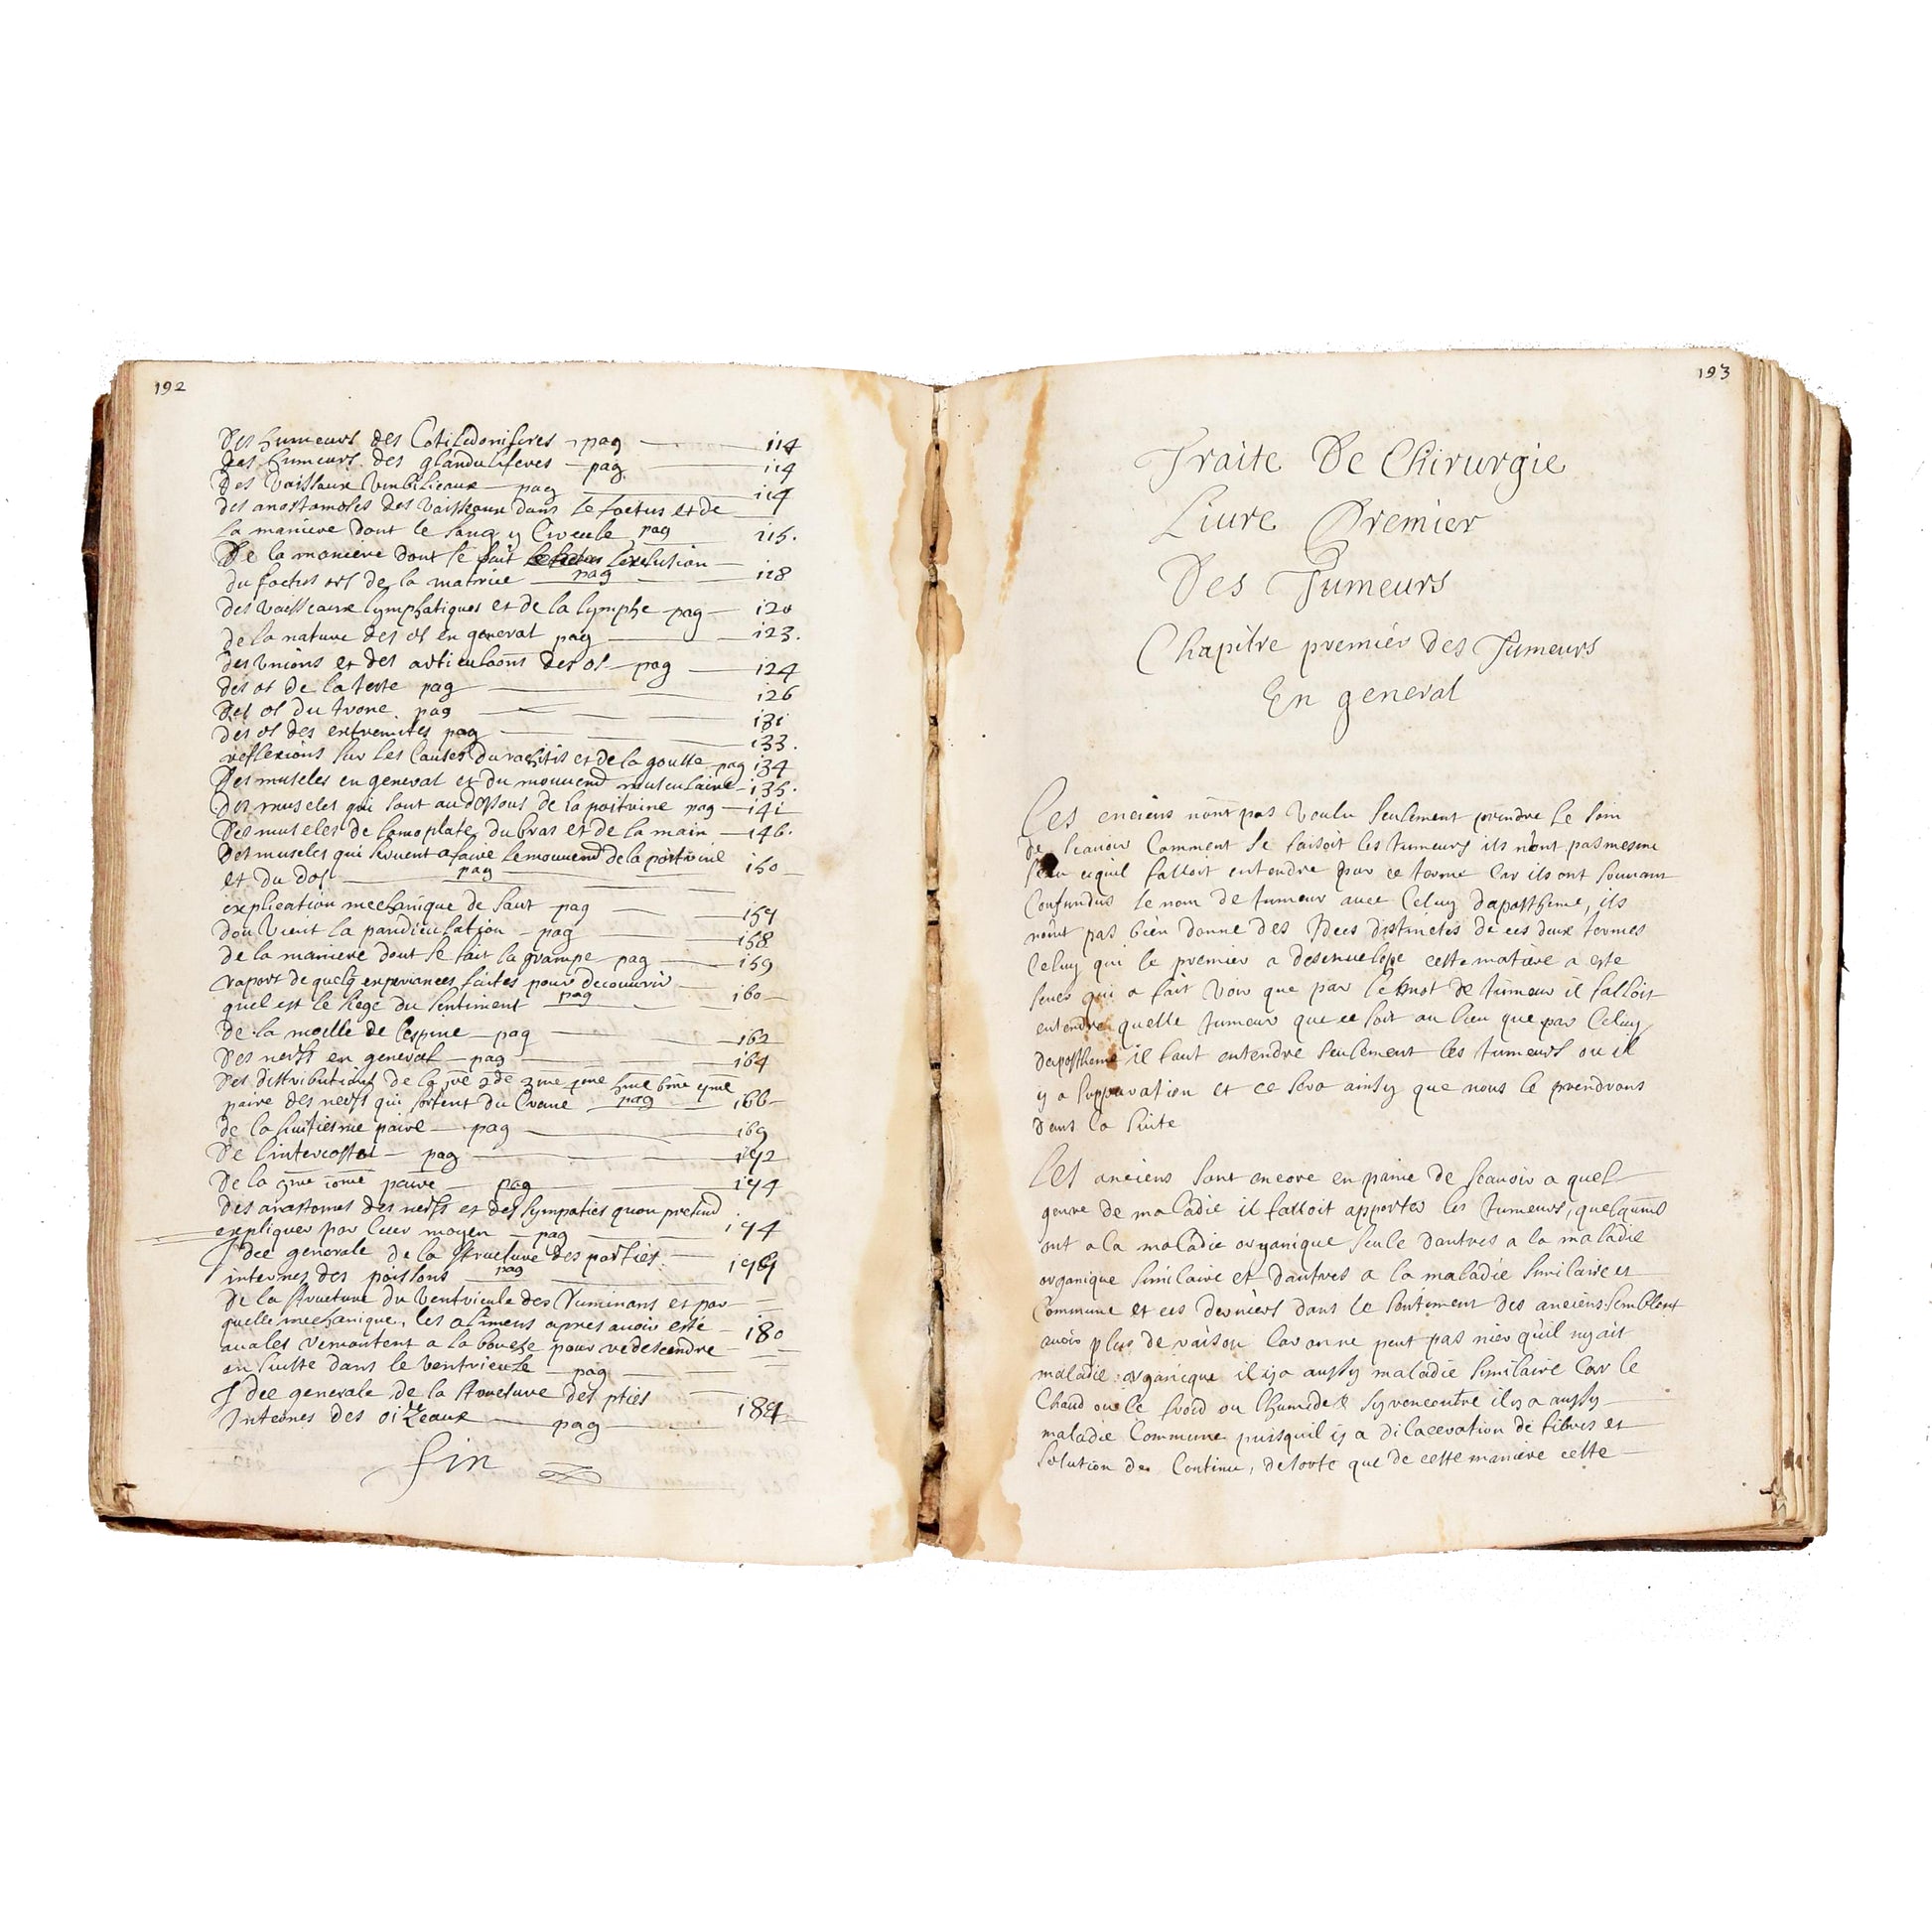 192
Des humeurs des Cotiledoniferes pag 114
Des humeurs des glanduliferes pag 114
Des Vaissaux Vmbilicaux pag 114
des anastamoses des Vaisseaux dans le foetus et de
la maniere dont le sang y Circule pag 115.
De la maniere dont se fait lexclusion
du foetus ors de la matrice pag 118
des Vaisseaux lymphatiques et de la lymphe pag 120
de la nature des os en general pag 123.
des Vnions et des articulaõns des os pag 124
des os de la teste pag 126
des os du trone pag 131
des os des extremites pag 133.
reflexions sur les Causes du rachitis et de la goutte pag 134
Des muscles en general et du mouuemt musculaire 135.
des muscles qui sont au dessous de la poitrine pag 141
Des muscles de lomoplate du bras et de la main 146.
des muscles qui seruent a faire le mouuemt de la poitrine
et du dos pag 150
explication mechanique de saut pag 157
dou Vient la pandiculation pag 158
de la maniere dont se fait la grampe pag 159
raport de quelq experiances faites pour decouurir
quel est le siege du sentiment pag 160
de la moelle de lespine pag 162
Des nerfs en general pag 164
Des distributions de la 1re 2de 3me 4me 5me 6me 7me
paire des nerfs qui sortent du Crane pag 166
de la huitiesme paire pag 169
De lintercostal pag 172
De la 9me 10me paire pag 174
des anastomos des nerfs et des sympaties quon pretend
expliquer par leur moyen pag 174
Idee generale de la structure des parties
internes des poissons pag
De la structure du Ventricule des Ruminans et par
quelle mechanique, les alimens apres auoir esté
auales remontent a la bouche pour redescendre 180
en suitte dans le Ventricule pag
Idee generale de la structure des pties
Internes des oiZeaux pag 184
fin
193
Traite De Chirurgie
Liure Premier
Des Tumeurs
Chapitre premier des Tumeurs
En general
Les enciens nont pas Voulu seulement prendre le soin
de scauoir Comment se faisoit les tumeurs ils nont pas mesme
cequil falloit entendre par ce terme Car ils ont souuant
Confundus le nom de tumeur auec Celuy dapostheme, ils
nont pas bien donne des Idees distinctes de ces deux termes
Celuy qui le premier a desenuelope cette matiere a este
qui a fait Voir que par le mot de tumeur il falloit
entendre quelle tumeur que ce soit au lieu que par Celuy
daposthame il faut entendre seulement les tumeurs ou il
y a suppuration et ce sera ainsy que nous le prendrons
dans la suite
Les anciens sont encore en paine de scauoir a quel
genre de maladie il falloit apporter les tumeurs, quelquuns
ont a la maladie organique seule dautres a la maladie
organique similaire et dautres a la maladie similaire et
Commune et ces derniers dans le sentiment des anciens semblent
auoir plus de raison Car on ne peut pas nier quil ny ait
maladie organique il y a aussy maladie similaire Car le
Chaud ou le froid ou lhumide sy rencontre il y a aussy
maladie Commune puisquil y a dilaceration de fibres et
solution de Continu, desorte que de cette maniere cette